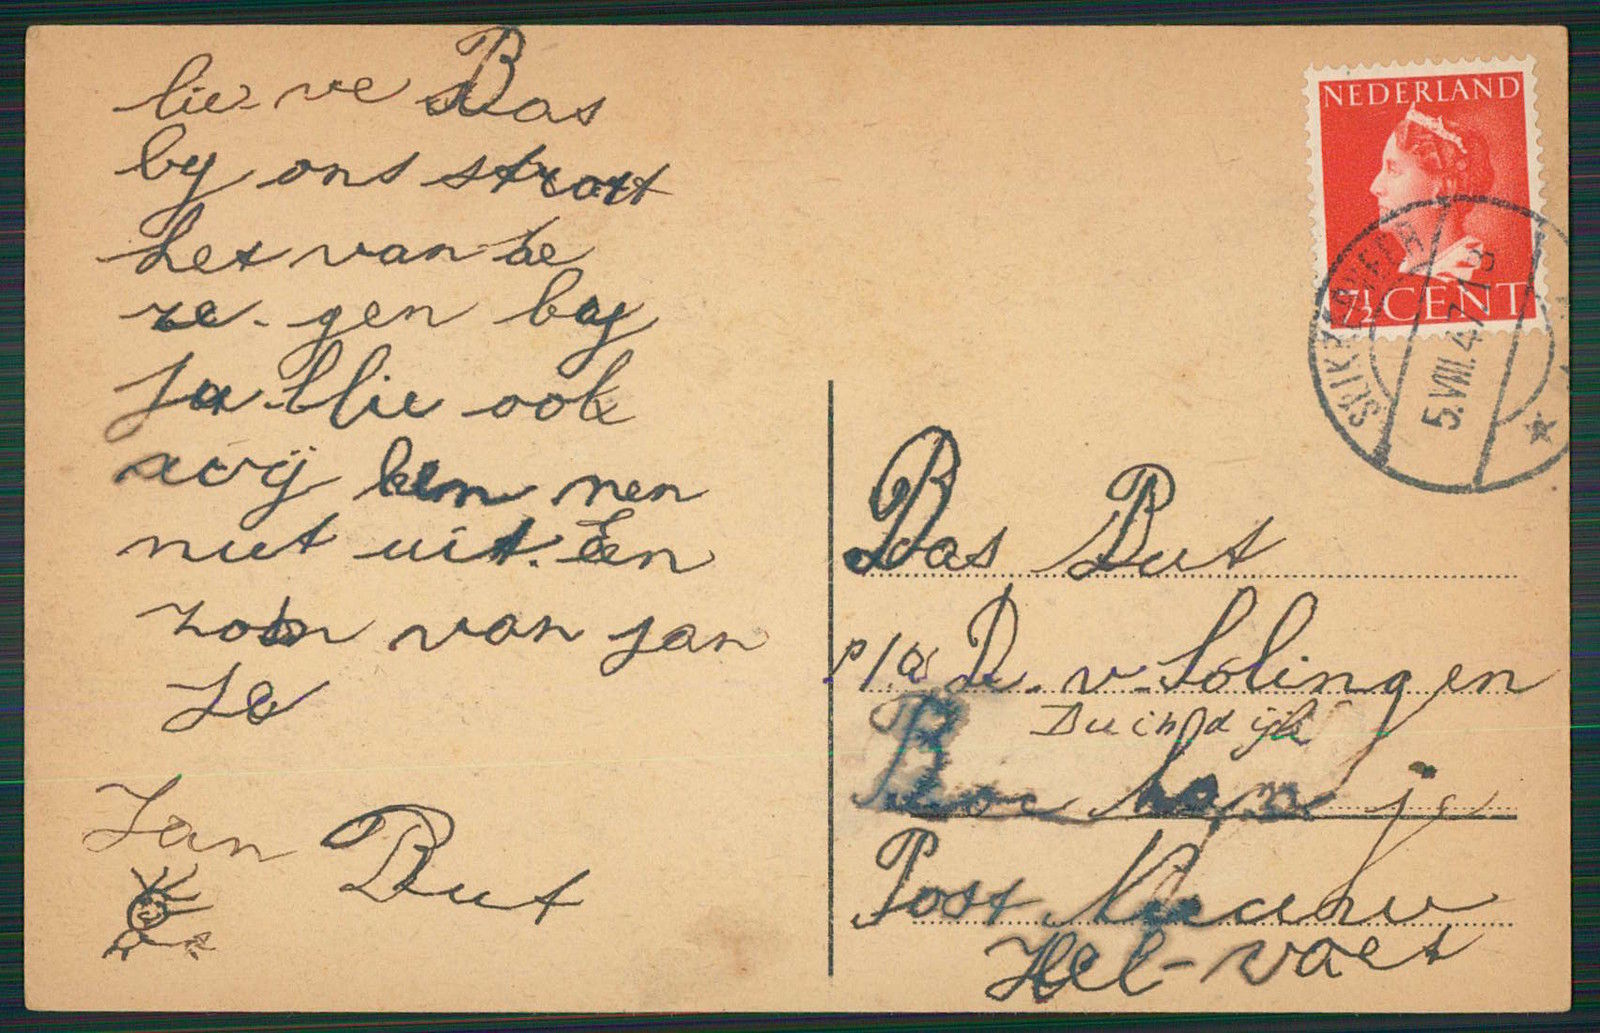 lie-ve Bas
by ons stratt
het van de
re-gen by
ju-llie ook
wij ken nen
niet uit. Een
zoen van jan
Jo
Jan But
NEDERLAND
7½ CENT
5.VIII.47.18
Bas But
p/a D. v. Solingen
Duindijk
je
Post Nieuw
Hel-voet